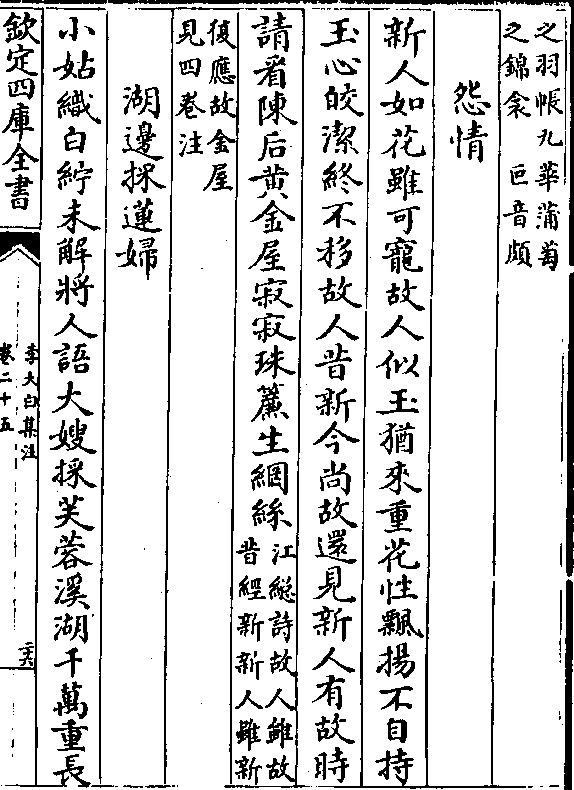 之羽帳九華蒲萄
之錦衾　叵音頗
怨情
新人如花雖可寵故人似玉猶來重花性飄揚不自持
玉心皎潔終不移故人昔新今尚故還見新人有故時
請看陳后黄金屋寂寂珠簾生網絲
江總詩故人雖故
昔經新新人雖新
復應故金屋
見四卷注
湖邊採蓮婦
小姑織白紵未解將人語大嫂採芙蓉溪湖千萬重長
欽定四庫全書
李太白集注
卷二十五
二六